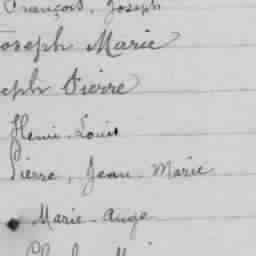 François, Joseph
Joseph Marie
Pierre
Henri-Louis
Pierre, Jean Marie
Marie-Ange